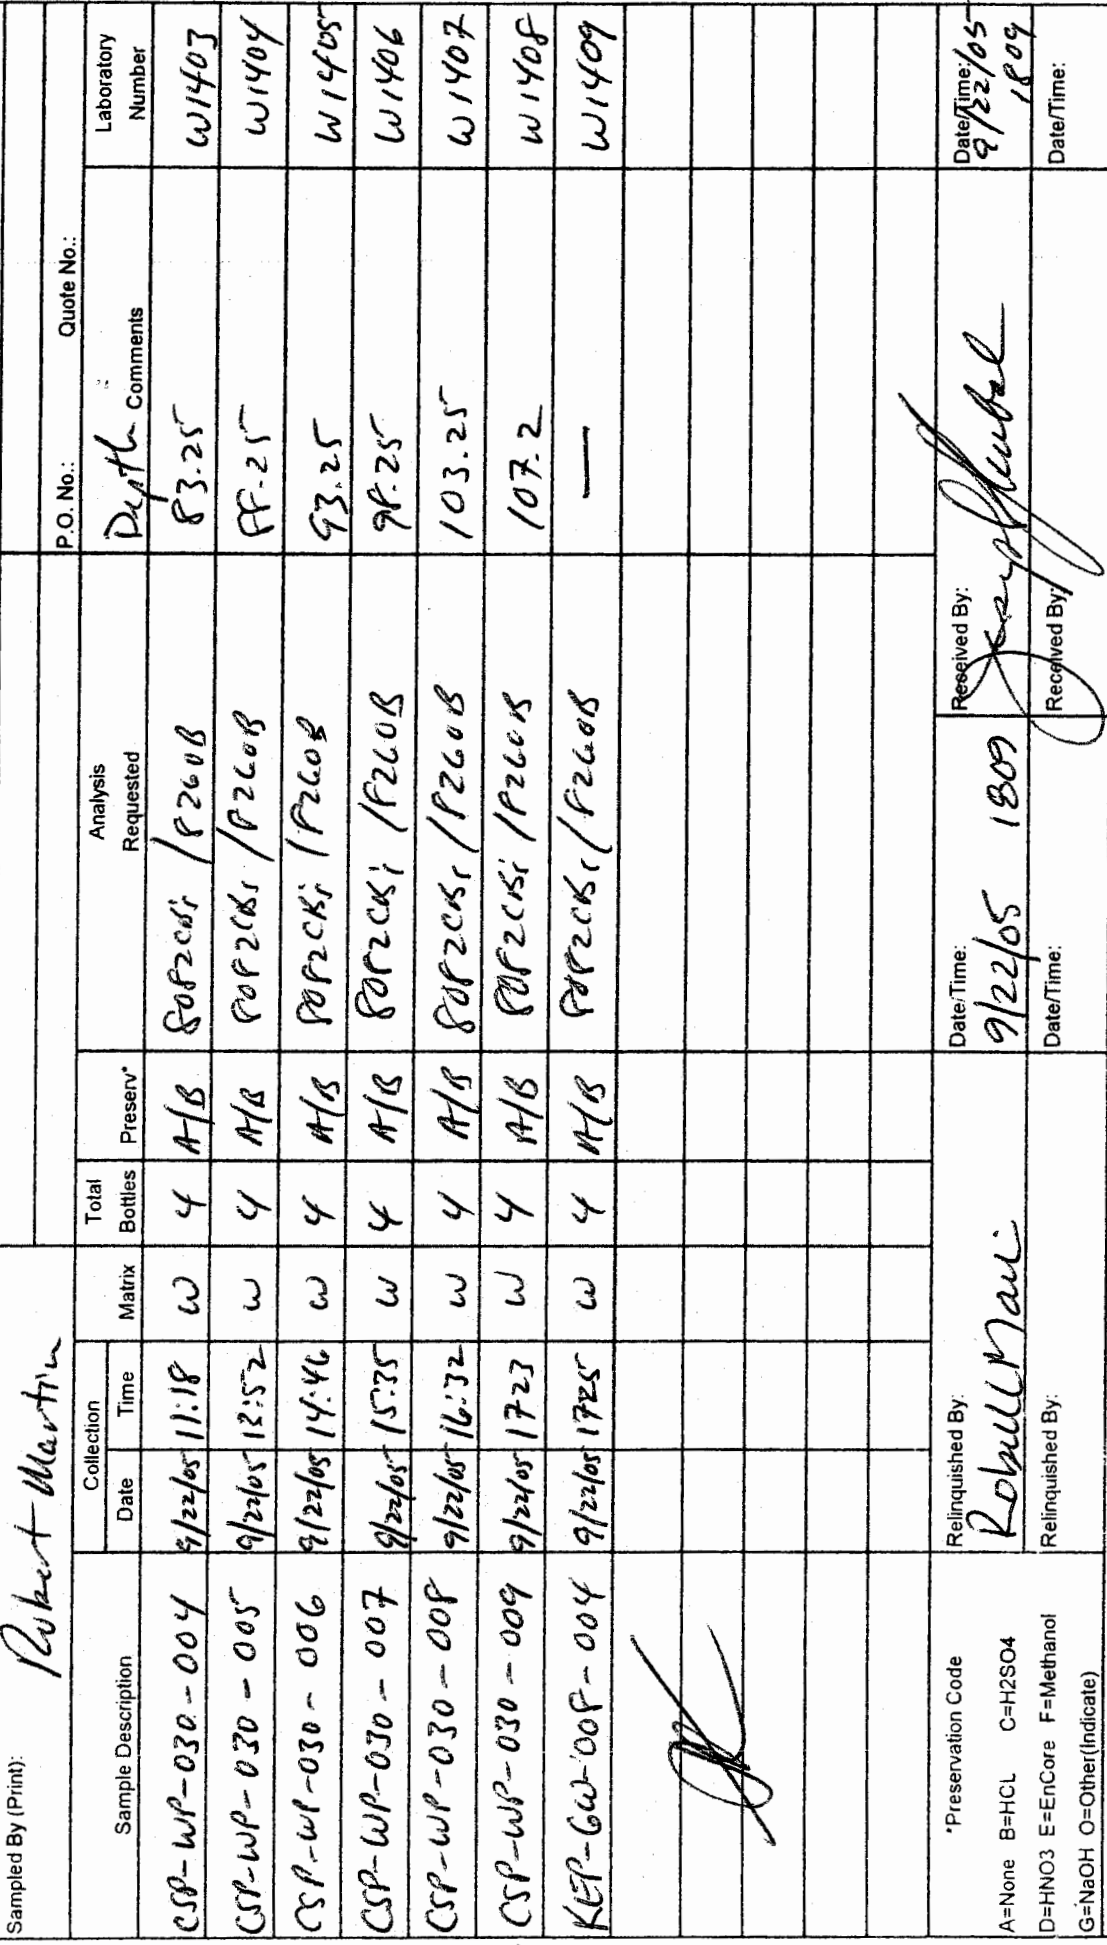 Sampled By (Print): Robert Martin
P.O. No.: Quote No.:
Sample Description Collection Date Time Matrix Total Bottles Preserv* Analysis Requested Depth Comments Laboratory Number
CSP-WP-030-004 9/22/05 11:18 W 4 A/B 8082CBs /8260B 83.25 W1403
CSP-WP-030-005 9/22/05 13:52 W 4 A/B 8082CBs /8260B 88.25 W1404
CSP-WP-030-006 9/22/05 14:46 W 4 A/B 8082CBs /8260B 93.25 W1405
CSP-WP-030-007 9/22/05 15:35 W 4 A/B 8082CBs /8260B 98.25 W1406
CSP-WP-030-008 9/22/05 16:32 W 4 A/B 8082CBs /8260B 103.25 W1407
CSP-WP-030-009 9/22/05 1723 W 4 A/B 8082CBs /8260B 107.2 W1408
KEP-GW-008-004 9/22/05 1725 W 4 A/B 8082CBs /8260B — W1409
*Preservation Code
A=None B=HCL C=H2SO4
D=HNO3 E=EnCore F=Methanol
G=NaOH O=Other(Indicate)
Relinquished By: Date/Time: 9/22/05 1809 Received By: Date/Time: 9/22/05 1809
Relinquished By: Date/Time: Received By: Date/Time: